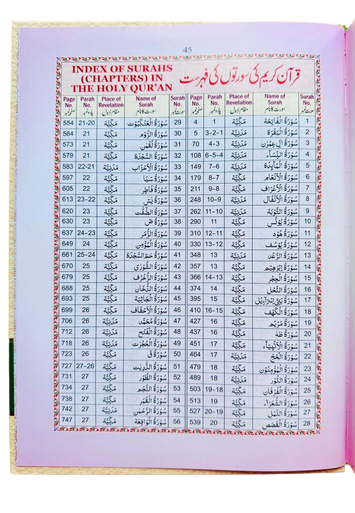 45
INDEX OF SURAHS
(CHAPTERS) IN
THE HOLY QUR'AN
قرآن کریم کی سورتوں کی فہرست
Page No. Parah No. Place of Revelation Name of Surah Surah No. Page No. Parah No. Place of Revelation Name of Surah Surah No.
554 21-20 مَكِّيَّة سُورَةُ الْعَنْكَبُوت 29 4 1 مَكِّيَّة سُورَةُ الْفَاتِحَة 1
564 21 مَكِّيَّة سُورَةُ الرُّوم 30 5 3-2-1 مَدَنِيَّة سُورَةُ الْبَقَرَة 2
573 21 مَكِّيَّة سُورَةُ لُقْمٰن 31 70 4-3 مَدَنِيَّة سُورَةُ اٰلِ عِمْرٰن 3
579 21 مَكِّيَّة سُورَةُ السَّجْدَة 32 108 6-5-4 مَدَنِيَّة سُورَةُ النِّسَآء 4
583 22-21 مَدَنِيَّة سُورَةُ الْاَحْزَاب 33 149 7-6 مَدَنِيَّة سُورَةُ الْمَآئِدَة 5
597 22 مَكِّيَّة سُورَةُ سَبَا 34 179 8-7 مَكِّيَّة سُورَةُ الْاَنْعَام 6
605 22 مَكِّيَّة سُورَةُ فَاطِر 35 211 9-8 مَكِّيَّة سُورَةُ الْاَعْرَاف 7
613 23-22 مَكِّيَّة سُورَةُ يٰسٓ 36 248 10-9 مَدَنِيَّة سُورَةُ الْاَنْفَال 8
620 23 مَكِّيَّة سُورَةُ الصّٰفّٰت 37 262 11-10 مَدَنِيَّة سُورَةُ التَّوْبَة 9
630 23 مَكِّيَّة سُورَةُ صٓ 38 290 11 مَكِّيَّة سُورَةُ يُونُس 10
637 24-23 مَكِّيَّة سُورَةُ الزُّمَر 39 310 12-11 مَكِّيَّة سُورَةُ هُود 11
649 24 مَكِّيَّة سُورَةُ الْمُؤْمِن 40 330 13-12 مَكِّيَّة سُورَةُ يُوسُف 12
661 25-24 مَكِّيَّة سُورَةُ حٰمٓ السَّجْدَة 41 348 13 مَدَنِيَّة سُورَةُ الرَّعْد 13
670 25 مَكِّيَّة سُورَةُ الشُّوْرٰى 42 357 13 مَكِّيَّة سُورَةُ اِبْرٰهِيْم 14
679 25 مَكِّيَّة سُورَةُ الزُّخْرُف 43 366 14-13 مَكِّيَّة سُورَةُ الْحِجْر 15
688 25 مَكِّيَّة سُورَةُ الدُّخَان 44 374 14 مَكِّيَّة سُورَةُ النَّحْل 16
693 25 مَكِّيَّة سُورَةُ الْجَاثِيَة 45 395 15 مَكِّيَّة سُورَةُ بَنِيْٓ اِسْرَآءِيْل 17
699 26 مَكِّيَّة سُورَةُ الْاَحْقَاف 46 410 16-15 مَكِّيَّة سُورَةُ الْكَهْف 18
706 26 مَدَنِيَّة سُورَةُ مُحَمَّد 47 427 16 مَكِّيَّة سُورَةُ مَرْيَم 19
712 26 مَدَنِيَّة سُورَةُ الْفَتْح 48 437 16 مَكِّيَّة سُورَةُ طٰهٰ 20
718 26 مَدَنِيَّة سُورَةُ الْحُجُرٰت 49 451 17 مَكِّيَّة سُورَةُ الْاَنْبِيَآء 21
723 26 مَكِّيَّة سُورَةُ قٓ 50 464 17 مَدَنِيَّة سُورَةُ الْحَجّ 22
727 27-26 مَكِّيَّة سُورَةُ الذّٰرِيٰت 51 479 18 مَكِّيَّة سُورَةُ الْمُؤْمِنُوْن 23
731 27 مَكِّيَّة سُورَةُ الطُّوْر 52 489 18 مَدَنِيَّة سُورَةُ النُّوْر 24
734 27 مَكِّيَّة سُورَةُ النَّجْم 53 503 19-18 مَكِّيَّة سُورَةُ الْفُرْقَان 25
738 27 مَكِّيَّة سُورَةُ الْقَمَر 54 513 19 مَكِّيَّة سُورَةُ الشُّعَرَآء 26
742 27 مَدَنِيَّة سُورَةُ الرَّحْمٰن 55 527 20-19 مَكِّيَّة سُورَةُ النَّمْل 27
747 27 مَكِّيَّة سُورَةُ الْوَاقِعَة 56 539 20 مَكِّيَّة سُورَةُ الْقَصَص 28